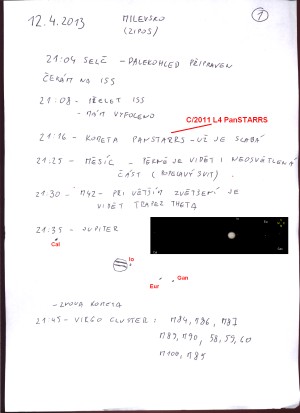 12.4.2013
MILEVSKO
(ZIPOS)
1
21:04 SELČ - DALEKOHLED PŘIPRAVEN
ČEKÁM NA ISS
21:08 - PŘELET ISS
- MÁM VYFOCENO
C/2011 L4 PanSTARRS
21:16 - KOMETA PANSTARRS - UŽ JE SLABÁ
21:25 - MĚSÍC - PĚKNĚ JE VIDĚT I NEOSVĚTLENÁ
ČÁST (POPELAVÝ SVIT).
21:30 - M42 - PŘI VĚTŠÍM ZVĚTŠENÍ JE
VIDĚT TRAPEZ THETA
21:35 - JUPITER
Cal
Io
Eur
Gan
KOMETA
21:45 - VIRGO CLUSTER: M84, M86, M87
M89, M90, 58, 59, 60
M100, M85